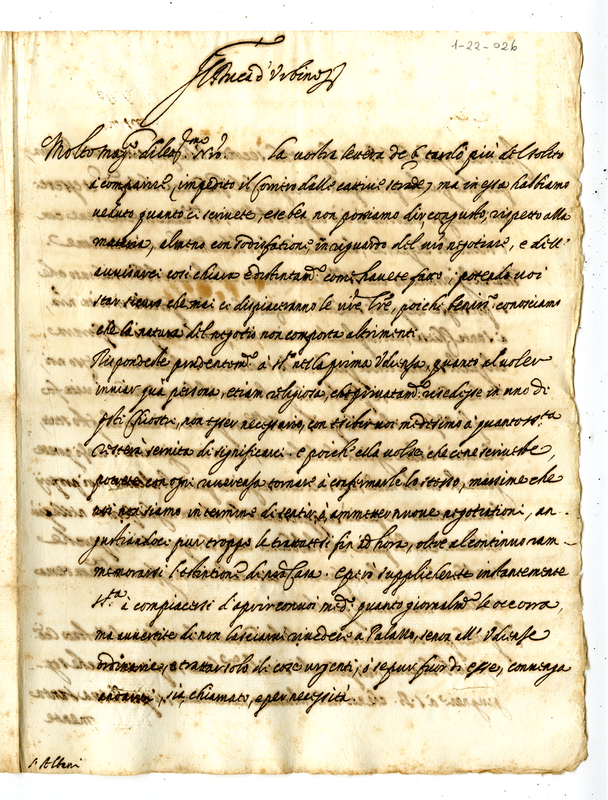 1-22-026
Il Duca d'Urbino
Molto mag.co dilett.mo nro. La vostra lettera de 6 tardò più del solito
à comparire, impedito il Corriro dalle cattive strade, ma in essa habbiamo
veduto quanto ci scrivete, e se ben non possiamo dir con gusto, rispetto alla
materia, almeno con sodisfatione, in riguardo del vro negotiare, e dell'
avvisarci così chiara e distintam.te come havete fatto; potendo voi
star sicuro che mai ci dispiaceranno le vre lre, poiche beniss.o conosciamo
che la natura del negotio non comporta altrimenti.
Rispondeste prudentem.te à S. nella prima Udienza, quanto al voler
inviar quà persona, etiam religiosa, che privatam.te risedesse in uno di
q.sti Chiostri, non esser necessario, con esibir voi medesimo à quanto S. S.ta
resterà servita di significarci. e poiche ella volse che ce ne scriveste,
potrete con ogni riverenza tornare à confirmarle lo stesso, massime che
noi non siamo in termine di sentir, ò ammetter nuove negotiationi, an-
gustiandoci pur troppo le trattatesi fin ad hora, oltre al continuo ram-
memorarsi l'estintione di nra Casa. e però supplicherete instantemente
S. S.ta à compiacersi d'aprir con voi med.o quanto giornalm.te le occorra,
ma avvertite di non lasciarvi rivedere à Palazzo, senon all' Udienze
ordinarie, e trattar solo di cose urgenti, ò se pur fuor di esse, convenga
andarvi, sia chiamato, e per necessità.
S. Albani